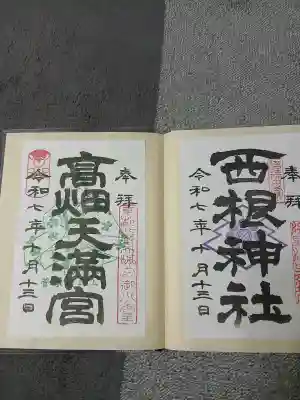 奉拝
西根神社
令和七年十月十三日
奉拝
高畑天満宮
令和七年十月十三日